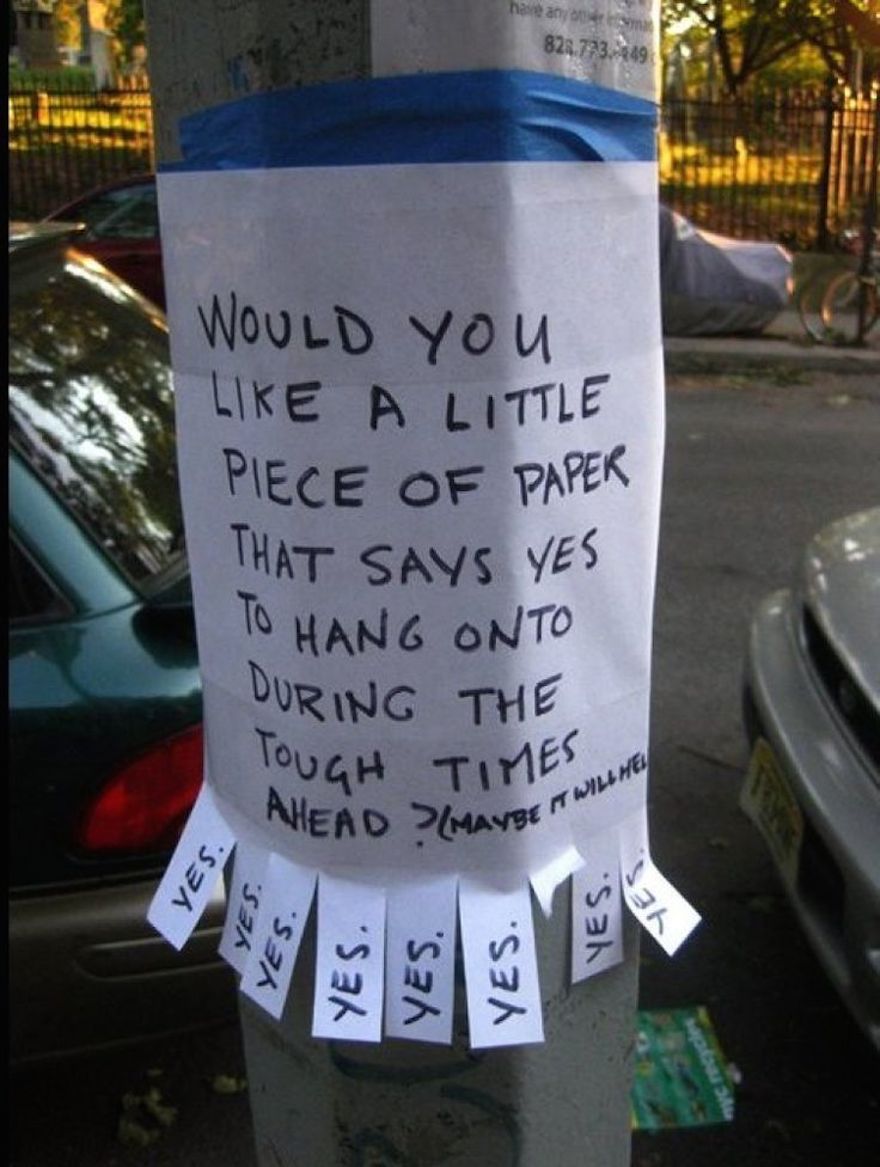 have any other
WOULD YOU
LIKE A LITTLE
PIECE OF PAPER
THAT SAYS YES
TO HANG ONTO
DURING THE
TOUGH TIMES
AHEAD? (MAYBE IT WILL HEL
YES.
YES.
YES.
YES.
YES.
YES.
YES.
YES.